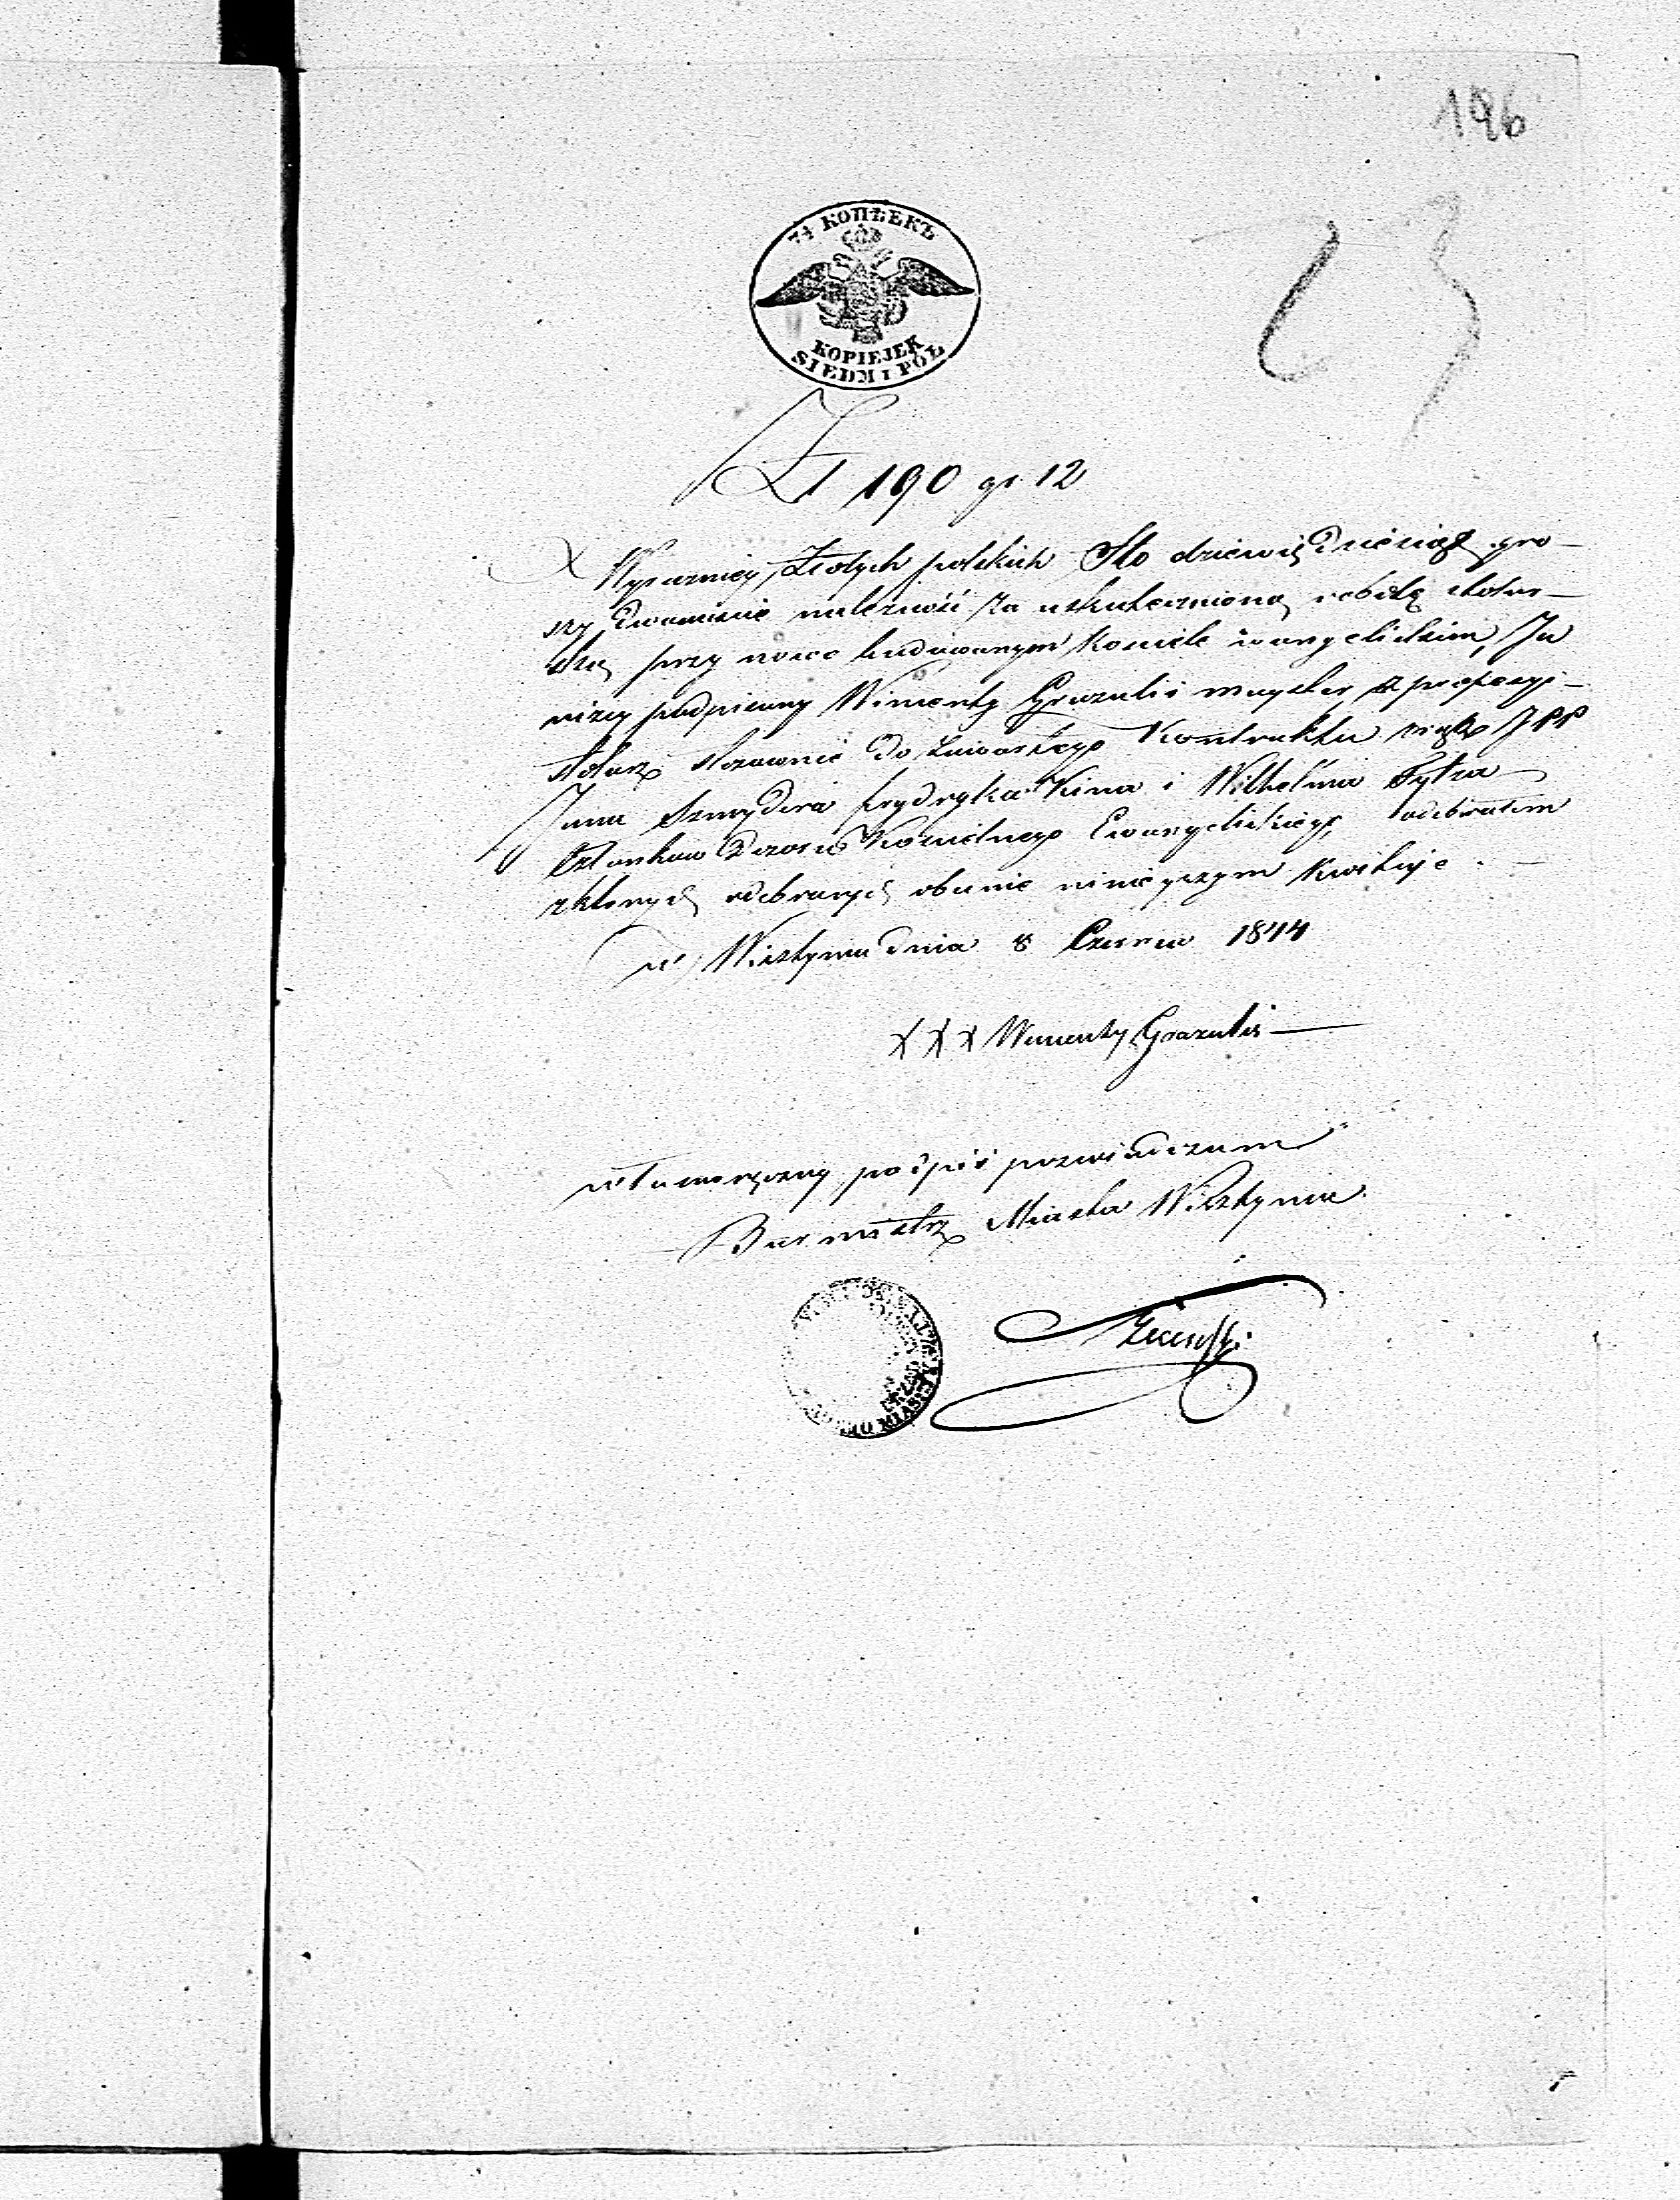 196
7½ КОПѢЕКЪ
KOPIEJEK
SIEDM I PÓŁ
Zł 190 gr 12
Wyrazniey Złotych polskich Sto dziewięćdziesiąt gro-
szy dwanascie należność za uskutecznioną robotę stolar-
ską przy nowo budowanym Kosciele ewangelickim, Ja
niżey podpisany Wincenty Grazulis mayster z professyi
stolarz stosownie do zawartego Kontraktu między JPP
Jana Szmydera frydryka Kina i Wilhelma
Członkow Dozoru Koscielnego Ewangelickiego odebrałem
z ktorych odebranych obecnie ninieyszym Kwituje
w Wisztyncu dnia 8 Czerwca 1844
XXX Wincenty Grazulis
własnoręczny podpis poswiadczam
Burmistrz Miasta Wisztynca
MIASTA